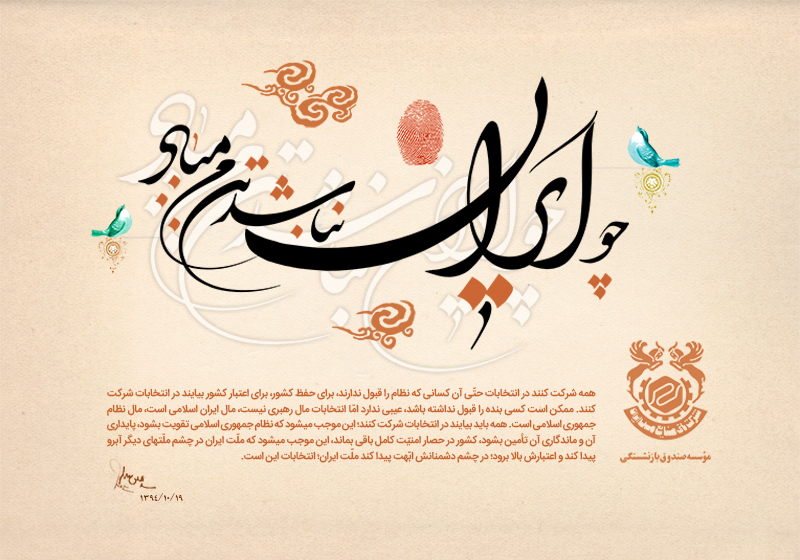 چو ایران نباشد تن من مباد
همه شرکت کنند در انتخابات حتّی آن کسانی که نظام را قبول ندارند، برای حفظ کشور، برای اعتبار کشور بیایند در انتخابات شرکت
کنند. ممکن است کسی بنده را قبول نداشته باشد، عیبی ندارد امّا انتخابات مال رهبری نیست، مال ایران اسلامی است، مال نظام
جمهوری اسلامی است. همه باید بیایند در انتخابات شرکت کنند؛ این موجب میشود که نظام جمهوری اسلامی تقویت بشود، پایداری
آن و ماندگاری آن تأمین بشود، کشور در حصار امنیّت کامل باقی بماند، این موجب میشود که ملّت ایران در چشم ملّتهای دیگر آبرو
پیدا کند و اعتبارش بالا برود؛ در چشم دشمنانش ابّهت پیدا کند ملّت ایران؛ انتخابات این است.
۱۳۹۴/۱۰/۱۹
مؤسسه صندوق بازنشستگی